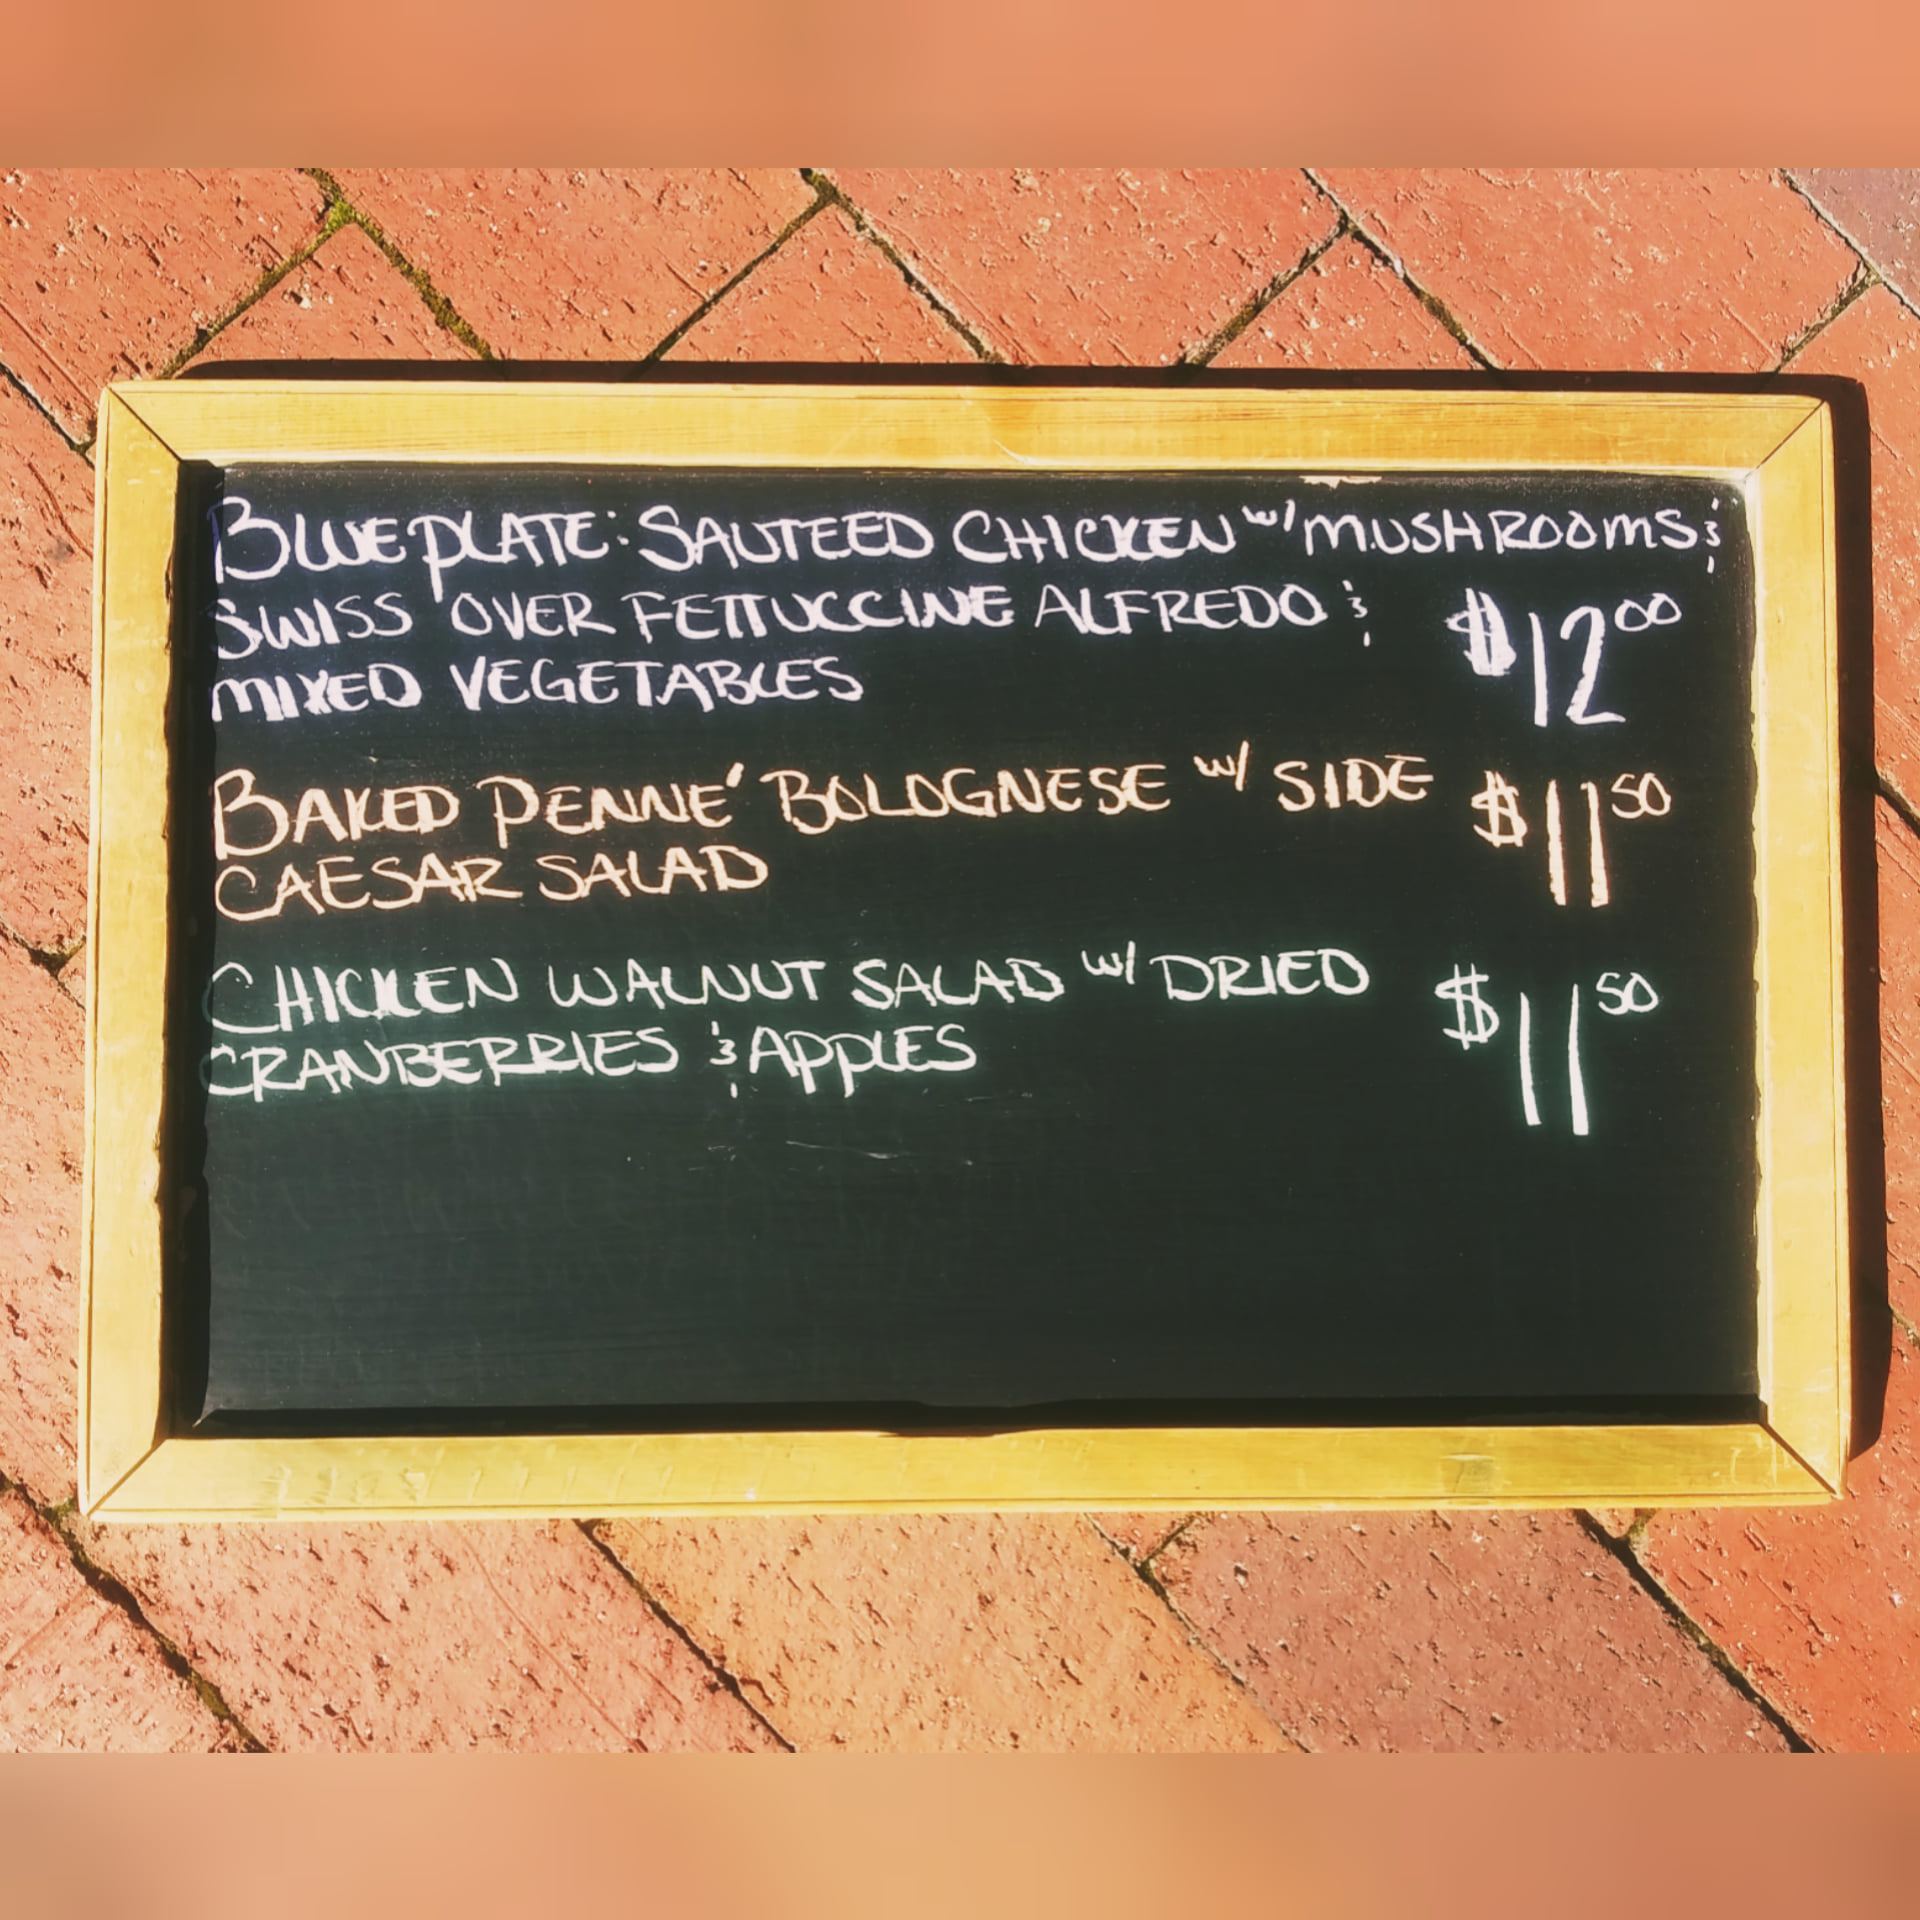 BLUEPLATE: SAUTEED CHICKEN w/ MUSHROOMS &
SWISS OVER FETTUCCINE ALFREDO & $12.00
MIXED VEGETABLES
BAKED PENNE' BOLOGNESE w/ SIDE $11.50
CAESAR SALAD
CHICKEN WALNUT SALAD w/ DRIED $11.50
CRANBERRIES & APPLES